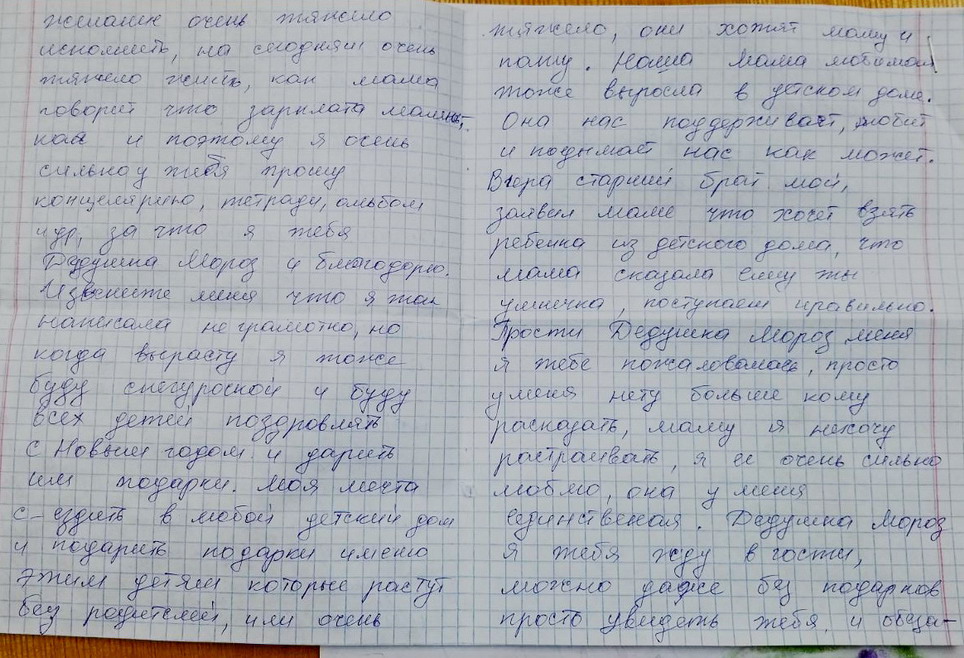 желание очень тяжело
исполнить, на сегодняш очень
тяжело жить, как мама
говорит что зарплата малинь,
кая и поэтому я очень
сильно у тебя прошу
концелярию, тетради, альбом
и др, за что я тебя
Дедушка Мороз и благодорю.
Извените меня что я так
написала не грамотно, но
когда вырасту я тоже
буду снегурочкой и буду
всех детей поздровлять
с Новым годом и дарить
им подарки. Моя мечта
с-ездить в любой детский дом
и подарить подарки имено
этим детям которые растут
без родителей, или очень
тяжело, они хотят маму и
папу. Наша мама любимая
тоже выросла в деском доме.
Она нас поддерживает, любит
и подымает нас как может.
Вчера старший брат мой,
заявил маме что хочет взять
ребенка из детского дома, что
мама сказала ему ты
умничка, поступаеш правильно.
Прости Дедушка Мороз меня
я тебе пожаловалась, просто
у меня нету больше кому
расказать, маму я нехочу
растраивать, я ее очень сильно
люблю, она у меня
единственая. Дедушка Мороз
я тебя жду в гости,
можно даже без подарков
просто увидеть тебя и обеща-